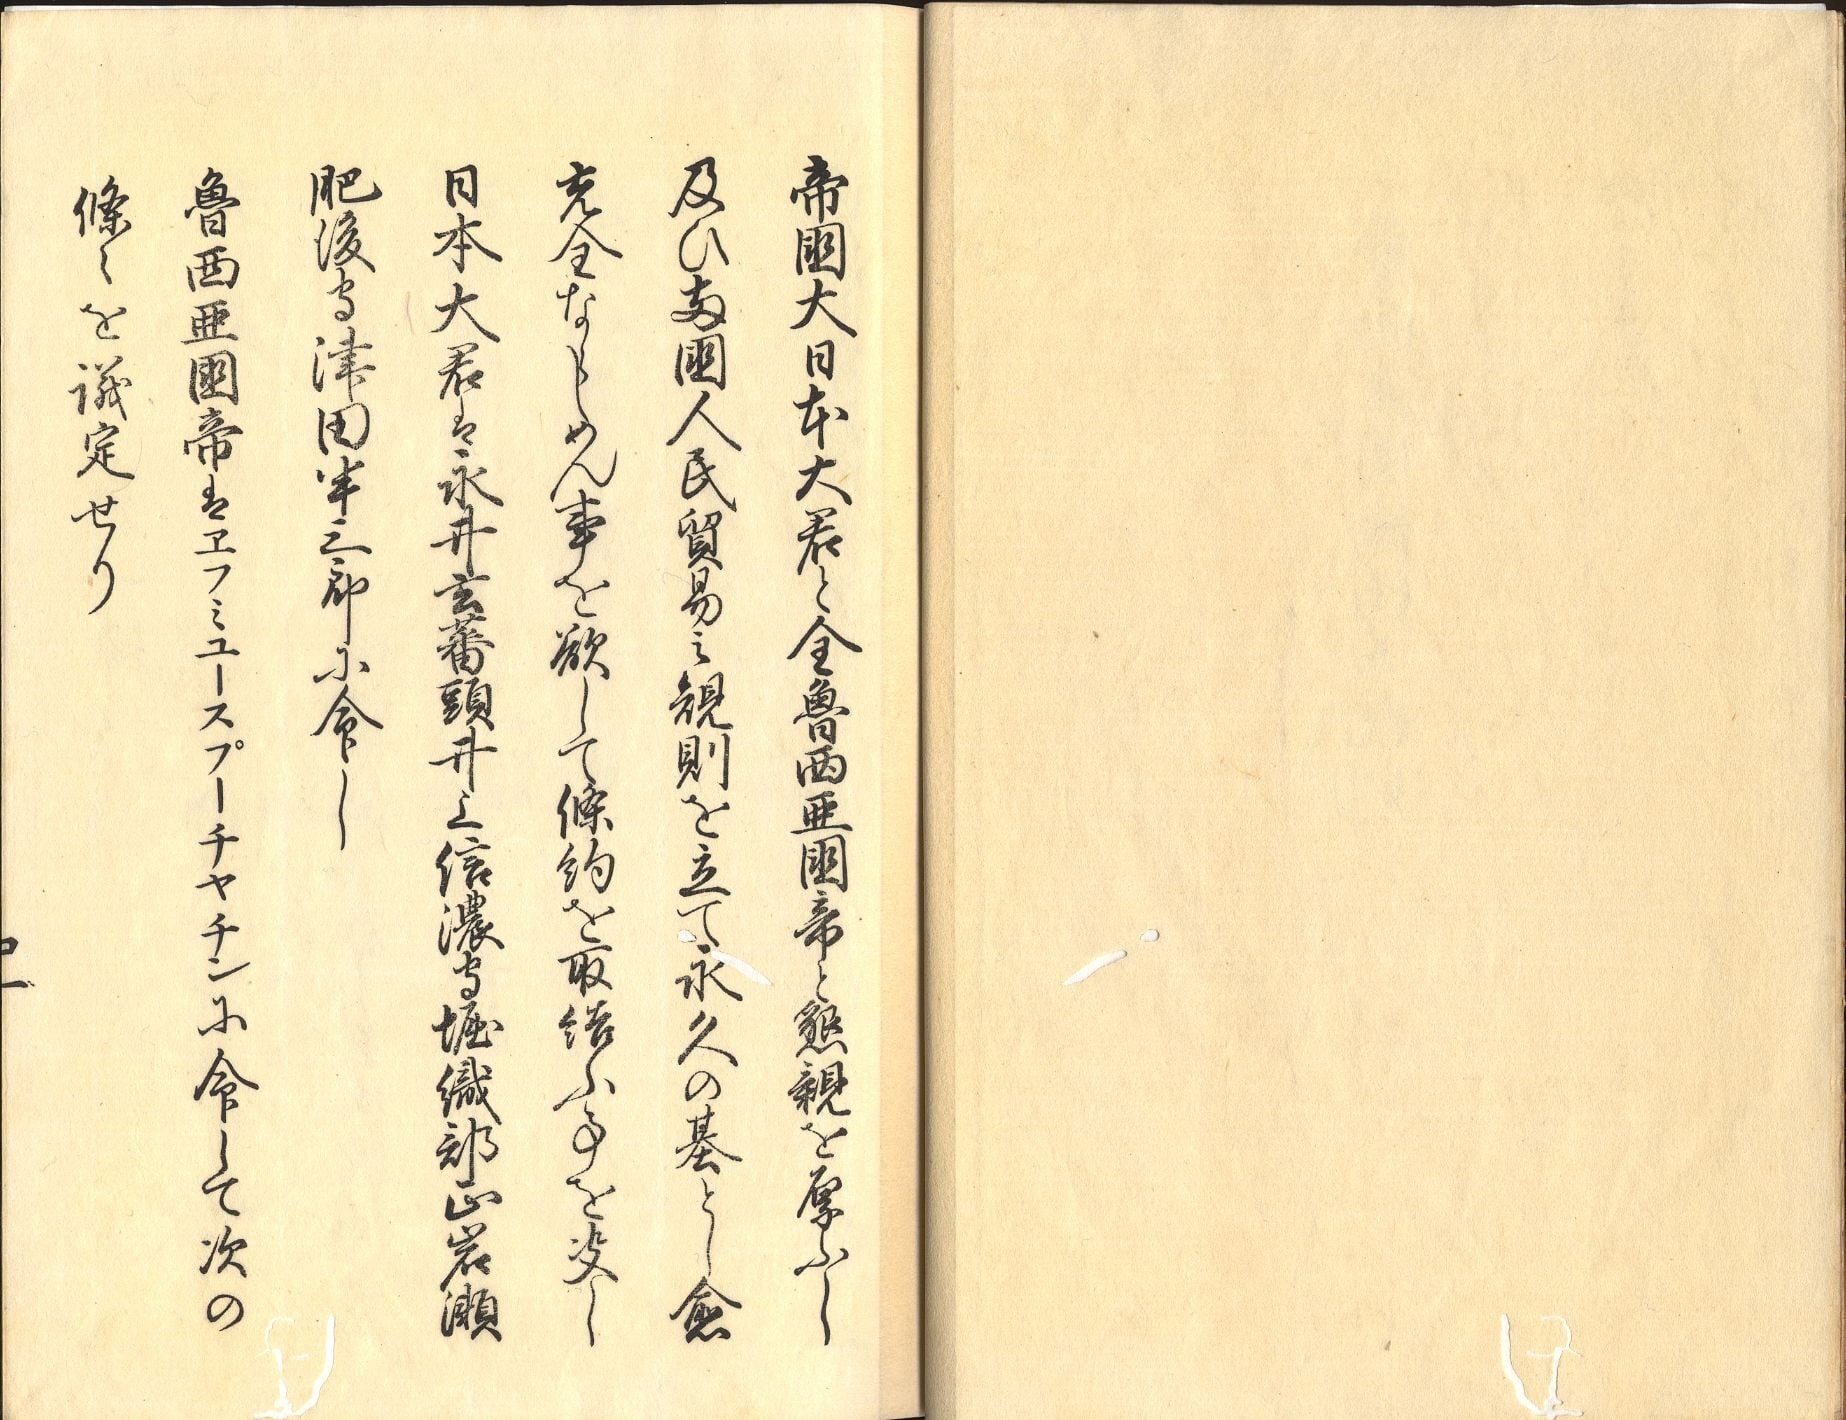 帝國大日本大君と全魯西亜國帝と懇親を厚ふし
及ひ両國人民貿易之規則を立て永久の基とし愈
充全ならしめん事を欲して條約を取結ふ事を決し
日本大君は永井玄蕃頭井上信濃守堀織部正岩瀬
肥後守津田半三郎に命し
魯西亜國帝はヱフミユースプーチヤチンに命して次の
條々を議定せり